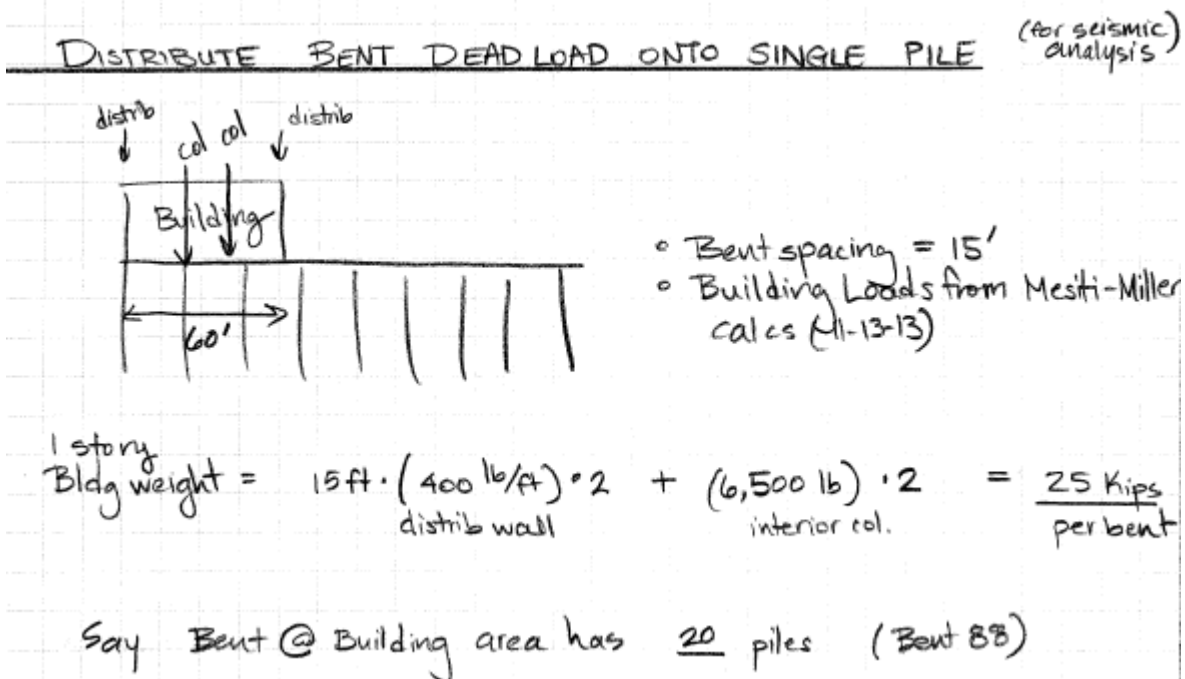 DISTRIBUTE BENT DEAD LOAD ONTO SINGLE PILE (for seismic analysis)
distrib col col distrib
Building
60'
• Bent spacing = 15'
• Building Loads from Mesiti-Miller
calcs (11-13-13)
1 story
Bldg weight = 15 ft · (400 lb/ft) · 2 + (6,500 lb) · 2 = 25 Kips
distrib wall interior col. per bent
Say Bent @ Building area has 20 piles (Bent 88)